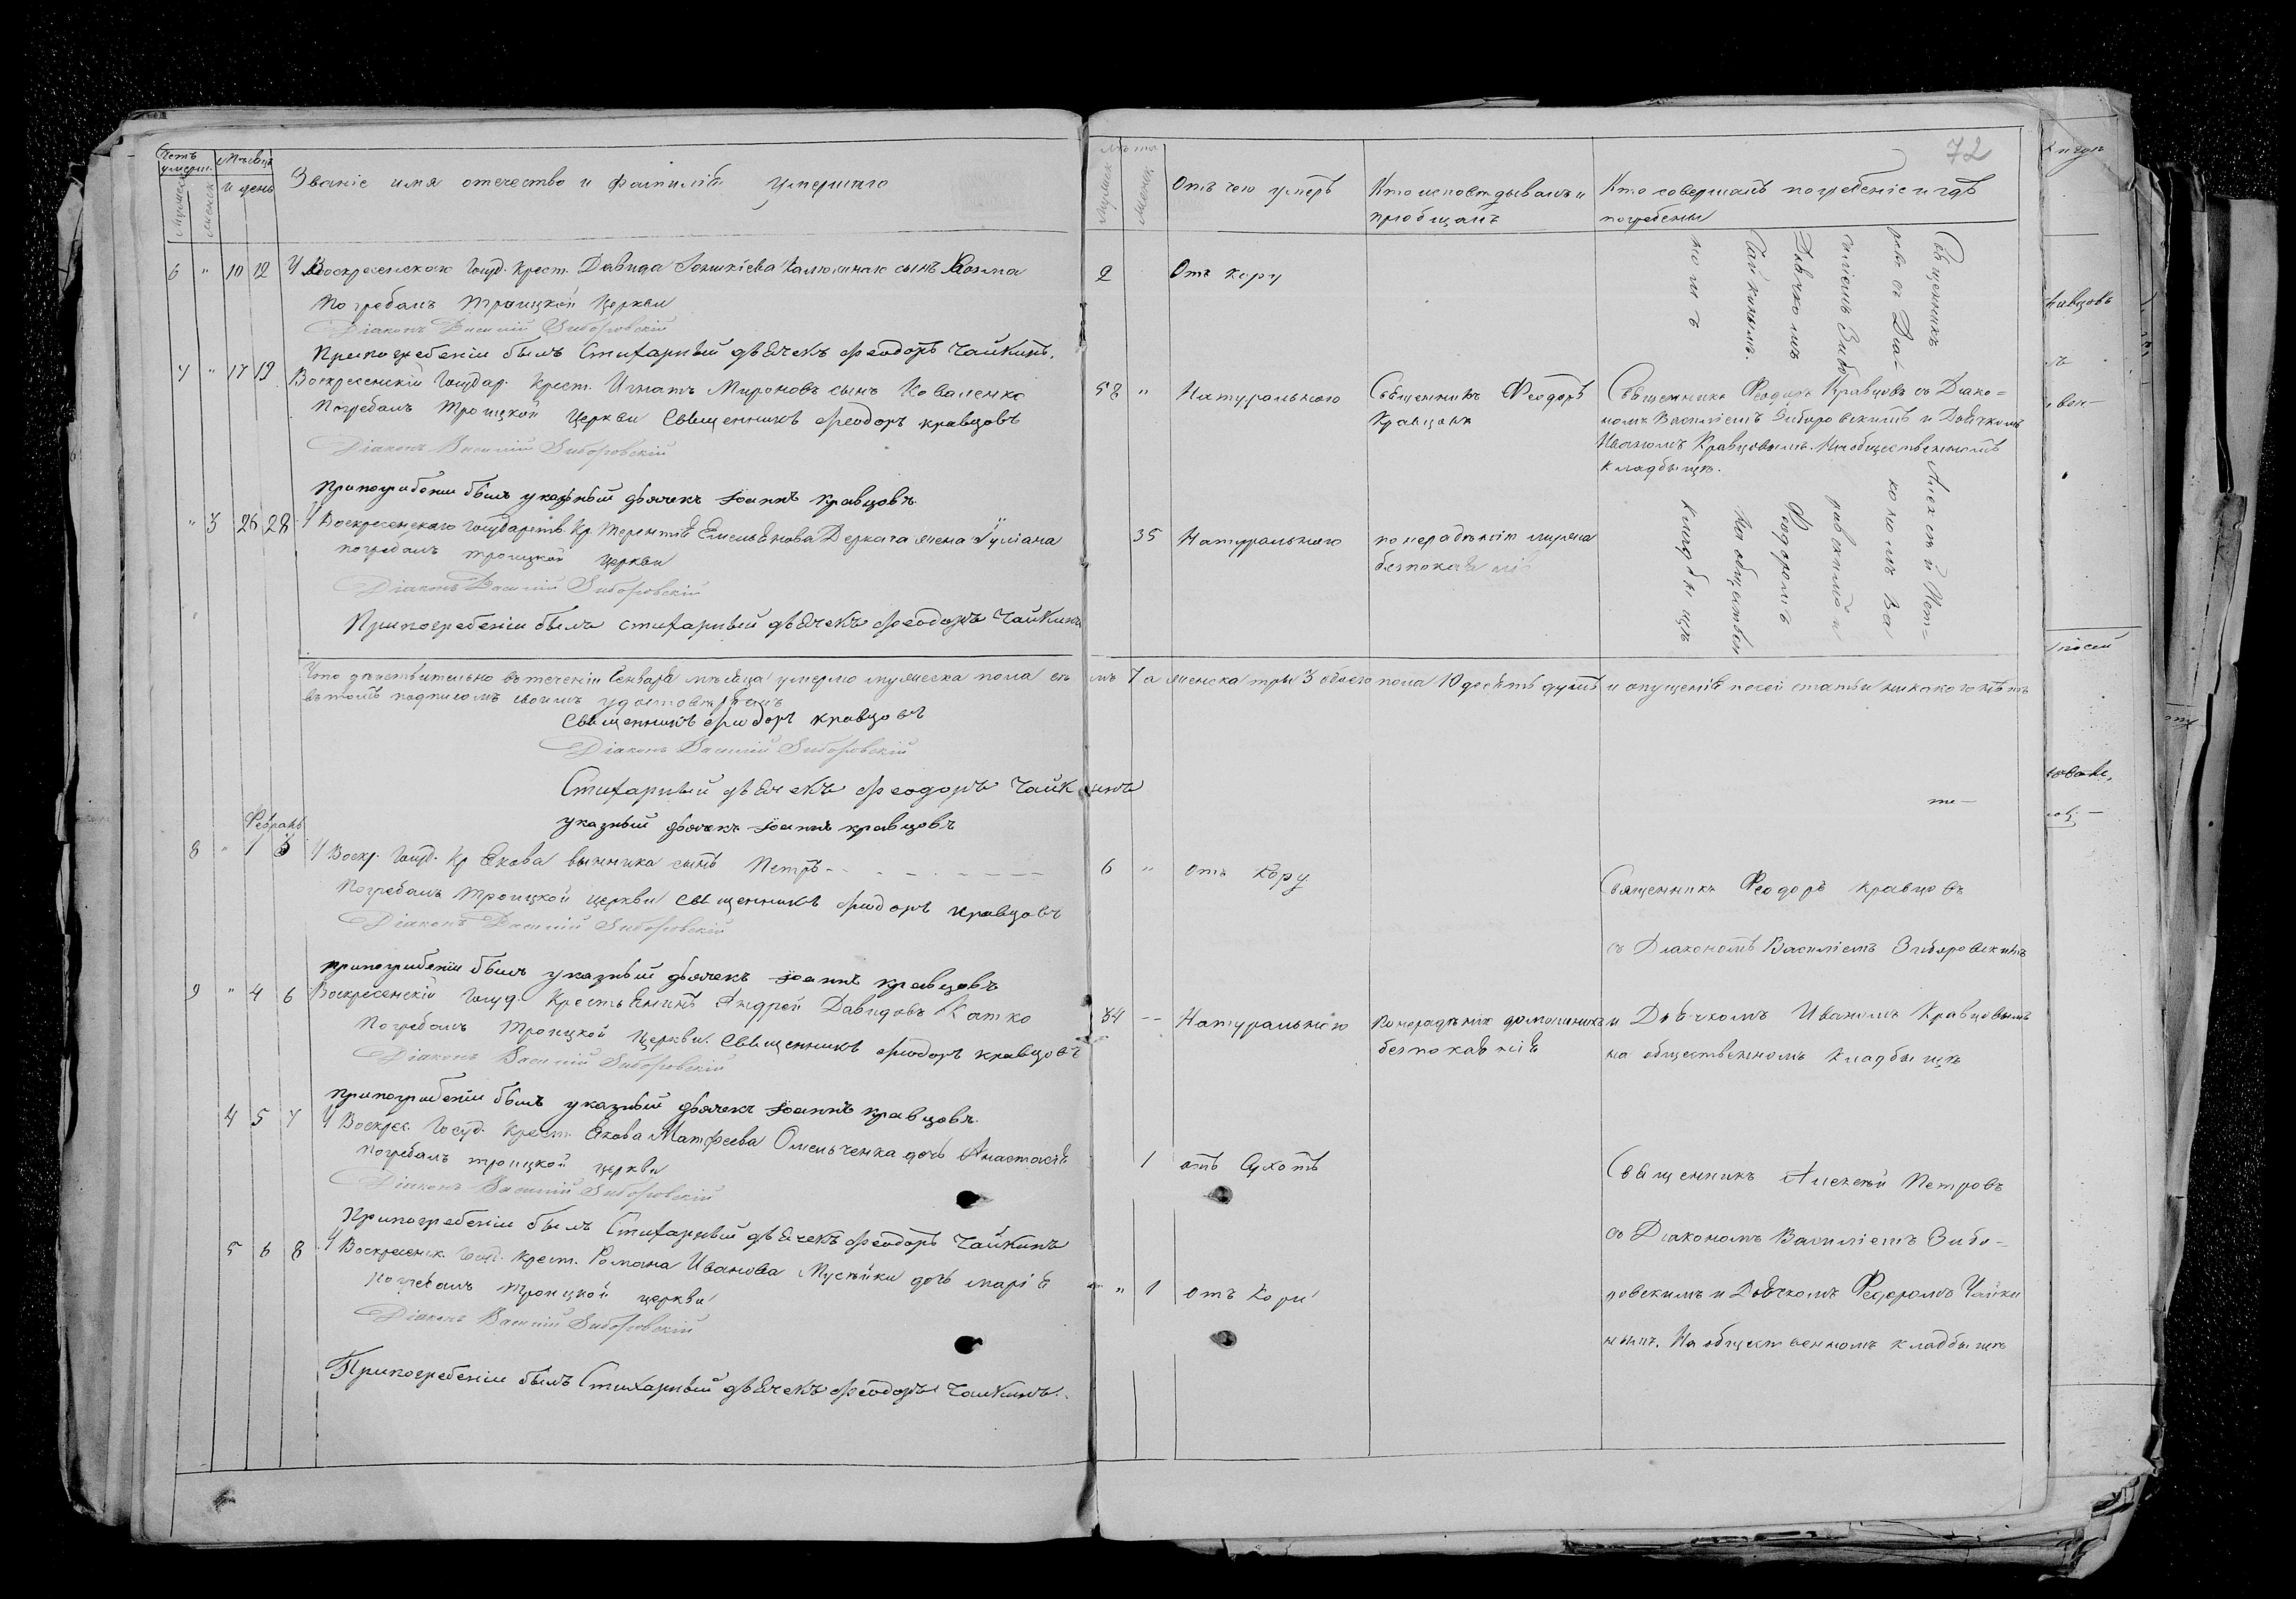 Счетъ умерш.
Мѣсяцъ и день
Званіе имя отечество и фамилія умершаго
6 " 10 12 У Воскресенскаго Госуд. Крест. Давида сынъ Козма
Погребалъ Троицкой Церкви
Діаконъ Василій Зиборовскій
При погребеніи былъ Стихарный дьячекъ Феодоръ Чайкинъ.
7 " 17 19 Воскресенскій Государ. Крест. Игнатъ Мироновъ сынъ Коваленко
Погребалъ Троицкой Церкви Священникъ Феодоръ Кравцовъ
Діаконъ Василій Зиборовскій
При погребеніи былъ указный дьячекъ Іоаннъ Кравцовъ
" 3 26 28 У Воскресенскаго Государств. Кр. Терентія Емельянова Деркача жена Іуліана
погребалъ троицкой церкви
Діаконъ Василій Зиборовскій
При погребеніи былъ стихарный дьячекъ Феодоръ Чайкинъ
Что дѣйствительно въ теченіи Генваря мѣсяца умерло мужеска пола
въ томъ подписомъ своимъ удостовѣряемъ
Священникъ Феодоръ Кравцовъ
Діаконъ Василій Зиборовскій
Стихарный дьячекъ Феодоръ Чайкинъ
указный дьячекъ Іоаннъ Кравцовъ
Февраль
8 " 1 3 У Воскр. Госуд. Кр. Якова Винника сынъ Петръ
Погребалъ Троицкой церкви священникъ Феодоръ Кравцовъ
Діаконъ Василій Зиборовскій
При погребеніи былъ указный дьячекъ Іоаннъ Кравцовъ
9 " 4 6 Воскресенскій Госуд. Крестьянинъ Андрей Давидовъ Катко
Погребалъ Троицкой Церкви Священникъ Феодоръ Кравцовъ
Діаконъ Василій Зиборовскій
При погребеніи былъ указный дьячекъ Іоаннъ Кравцовъ.
4 5 7 У Воскрес. Госуд. Крест. Якова Матфеева Омельченка дочь Анастасія
погребалъ троицкой церкви
Діаконъ Василій Зиборовскій
При погребеніи былъ Стихарный дьячекъ Феодоръ Чайкинъ
5 6 8 У Воскресенск. Госуд. Крест. Романа Иванова Мусѣйки дочь Марія
Погребалъ Троицкой церкви
Діаконъ Василій Зиборовскій
При погребеніи былъ Стихарный дьячекъ Феодоръ Чайкинъ.
72
Лѣта
Отъ чего умеръ
Кто исповѣдывалъ и пріобщалъ
Кто совершалъ погребеніе и гдѣ погребены
2 Отъ кору
Священникъ Алексѣй Пет-
ровъ съ Діакономъ Ва
силіемъ Зиборовскимъ и
Дьячкомъ Федоромъ
Чайкинымъ. На обществен
номъ кладбищѣ
58 " Натурального
Священникъ Феодоръ
Кравцовъ
Священникъ Феодоръ Кравцовъ съ Діако=
номъ Василіемъ Зиборовскимъ и Дьячкомъ
Иваномъ Кравцовымъ. На общественномъ
кладбищѣ.
35 Натурального
по нерадѣнію мужа
безпокаянія
7 а женска три 3 обоего пола 10 десять душъ и опущенія по сей статьи никакого нѣтъ
6 " отъ Кору
Священникъ Феодоръ Кравцовъ
съ Діакономъ Василіемъ Зиборовскимъ
84 Натурального
По нерадѣнію домашнихъ
безпокаянія
и Дьячкомъ Иваномъ Кравцовымъ
на общественномъ кладбищѣ
1 отъ Сухотъ
Священникъ Алексѣй Петровъ
съ Діакономъ Василіемъ Зибо-
" 1 Отъ Кори
ровскимъ и Дьячкомъ Федоромъ Чайки
нымъ. На общественномъ кладбищѣ